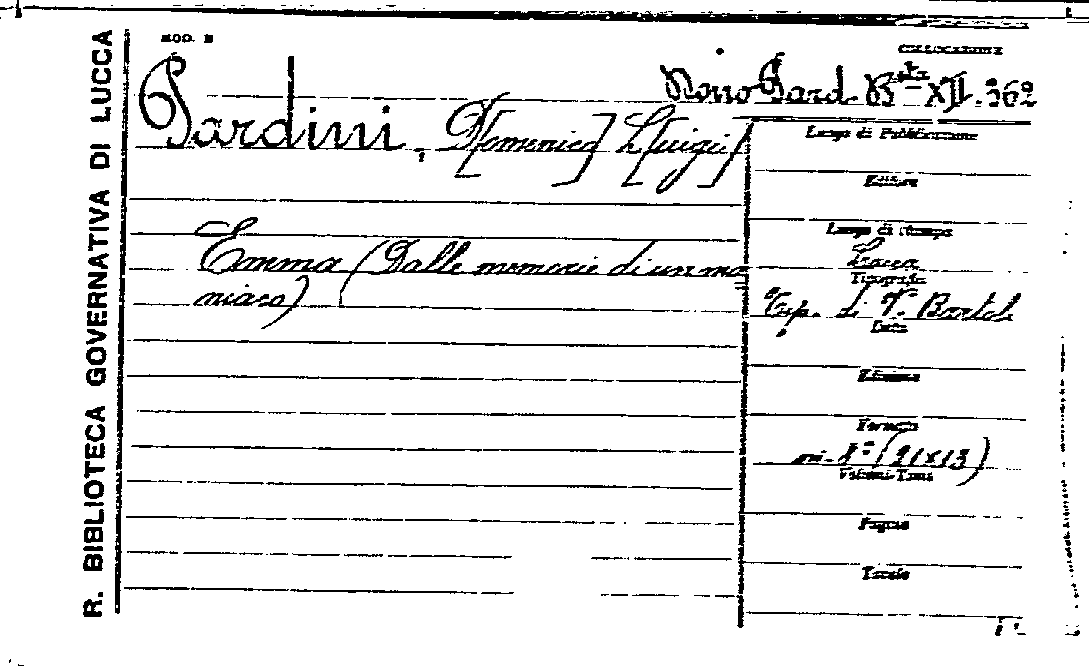 R. BIBLIOTECA GOVERNATIVA DI LUCCA
MOD. B
COLLOCAZIONE
Pard. Bta XII. 362
Pardini, D[omenico] L[uigi]
Emma (Dalle memorie di un ma=
niaco)
Luogo di Pubblicazione
Editore
Luogo di stampa
Lucca
Tipografia
Tip. di V. Bartoli
Data
Edizione
Formato
in-8° (21x13)
Volumi-Tomi
Pagine
Tavole